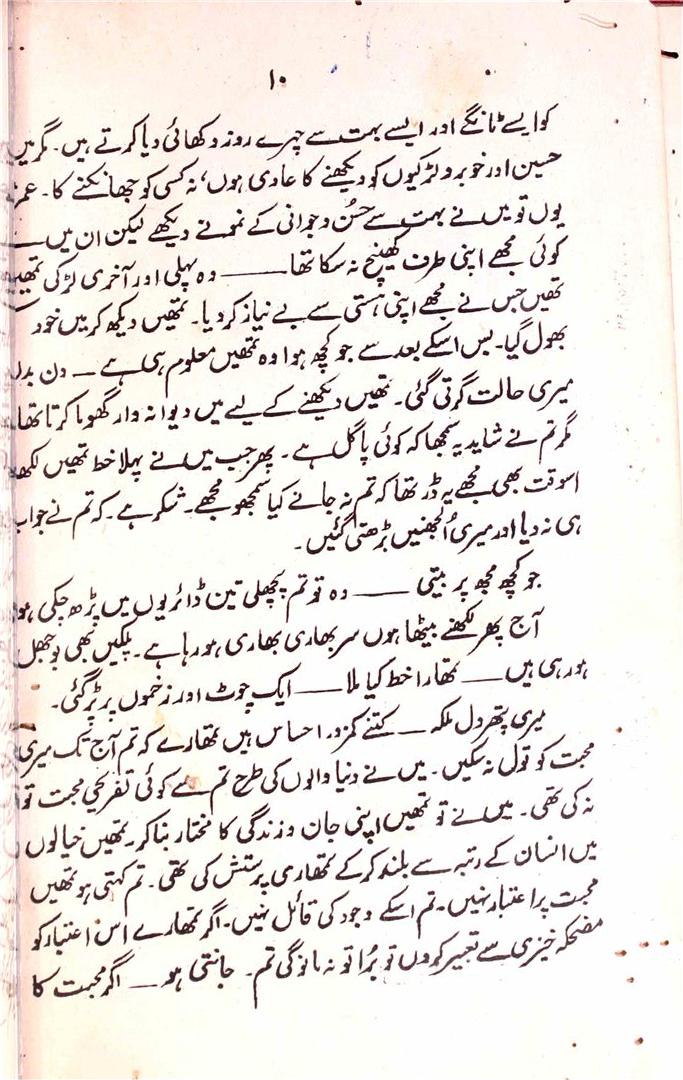 ۱۰
کو ایسے ٹانگے اور ایسے بہت سے چہرے روز دکھائی دیا کرتے ہیں۔ مگر میں
حسین اور خوبرو لڑکیوں کو دیکھنے کا عادی ہوں، نہ کسی کو جھانکنے کا۔
یوں تو میں نے بہت سے حسُن وجوانی کے نمونے دیکھے لیکن ان میں سے
کوئی مجھے اپنی طرف کھینچ نہ سکا تھا —— وہ پہلی اور آخری لڑکی تمھیں
تھیں جس نے مجھے اپنی ہستی سے بے نیاز کر دیا۔ تمھیں دیکھ کر میں خود
بھول گیا۔ بس اسکے بعد سے جو کچھ ہوا وہ تمھیں معلوم ہی ہے — دن بدن
میری حالت گرتی گئی۔ تمھیں دیکھنے کے لیے میں دیوانہ وار گھوما کرتا تھا
مگر تم نے شاید یہ سمجھا کہ کوئی پاگل ہے۔ پھر جب میں نے پہلا خط تمھیں لکھا
اسوقت بھی مجھے یہ ڈر تھا کہ تم نہ جانے کیا سمجھو مجھے۔ شکر ہے۔ کہ تم نے جواب
ہی نہ دیا اور میری اُلجھنیں بڑھتی گئیں۔
جو کچھ مجھ پر بیتی —— وہ تو تم پچھلی تین ڈائریوں میں پڑھ چکی ہو
آج پھر لکھنے بیٹھا ہوں سر بھاری بھاری ہو رہا ہے۔ پلکیں بھی بوجھل
ہو رہی ہیں —— تمھارا خط کیا ملا —— ایک چوٹ اور زخموں پر پڑ گئی۔
میری پتھر دل ملکہ — کتنے کمزور احساس ہیں تمھارے کہ تم آج تک میری
محبت کو تول نہ سکیں۔ میں نے دنیا والوں کی طرح تم سے کوئی تفریحی محبت تو
نہ کی تھی۔ میں نے تو تمھیں اپنی جان و زندگی کا مختار بنا کر۔ تمھیں خیالوں
میں انسان کے رتبہ سے بلند کر کے تمھاری پرستش کی تھی۔ تم کہتی ہو تمھیں
محبت پر اعتبار نہیں۔ تم اسکے وجود کی قائل نہیں۔ اگر تمھارے اس اعتبار کو
مضحکہ خیزی سے تعبیر کروں تو بُرا تو نہ مانوگی تم۔ جانتی ہو — اگر محبت کا